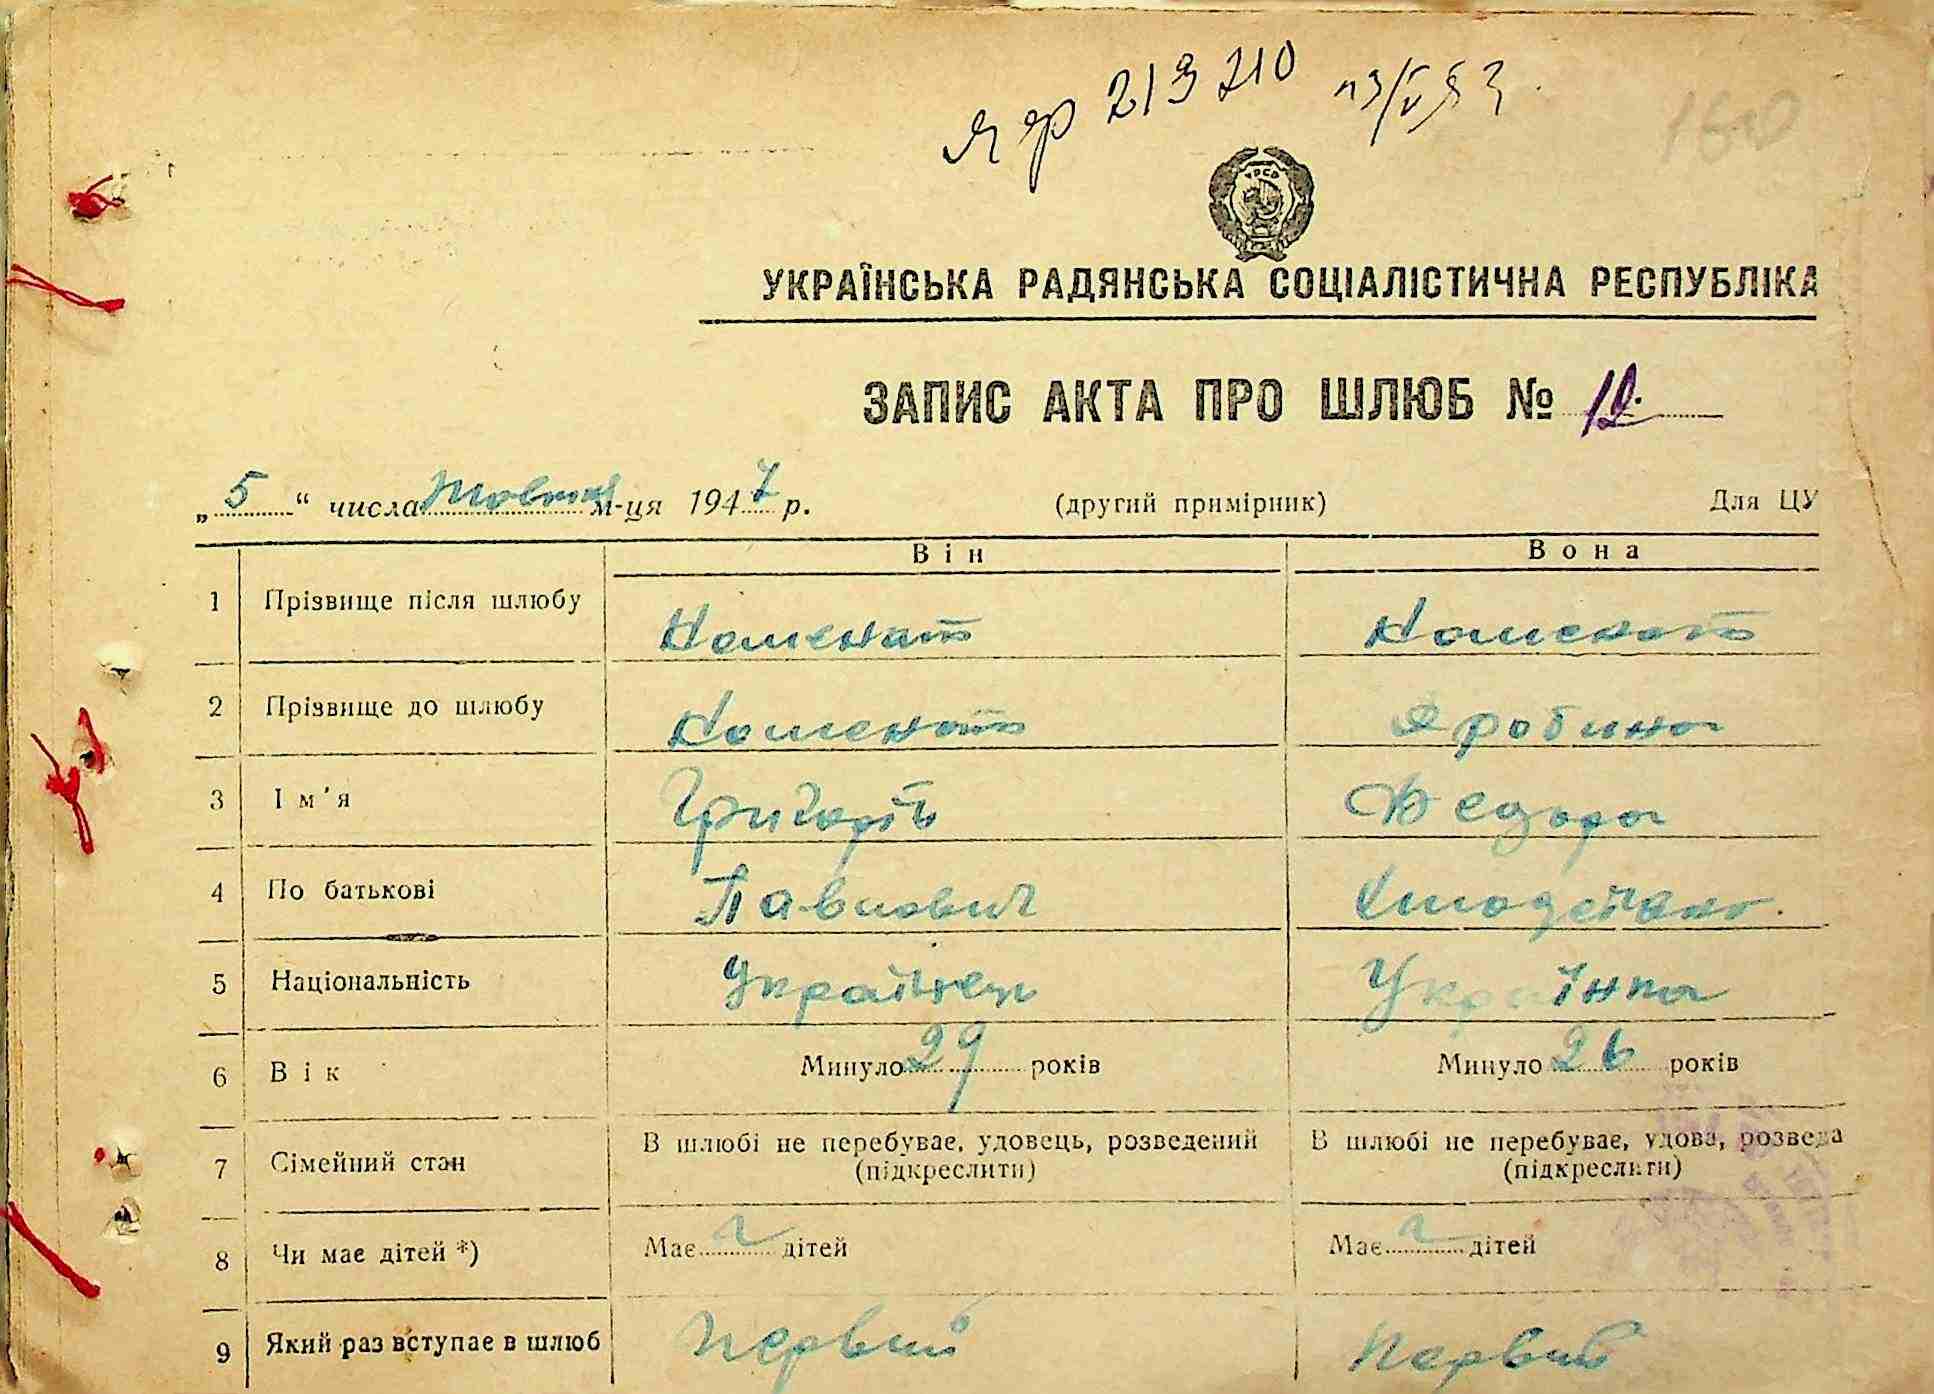 ЯР 213210
УРСР
УКРАЇНСЬКА РАДЯНСЬКА СОЦІАЛІСТИЧНА РЕСПУБЛІКА
ЗАПИС АКТА ПРО ШЛЮБ № 12.
„5“ числа Жовтня м-ця 1947 р. (другий примірник) Для ЦУ
Він Вона
1 Прізвище після шлюбу
2 Прізвище до шлюбу Яробина
3 Ім'я Григорій Федора
4 По батькові Павлович
5 Національність Українець Українка
6 Вік Минуло 29 років Минуло 26 років
7 Сімейний стан В шлюбі не перебуває, удовець, розведений В шлюбі не перебуває, удова, розведа
(підкреслити) (підкреслити)
8 Чи має дітей *) Має дітей Має дітей
9 Який раз вступає в шлюб Первий Первий